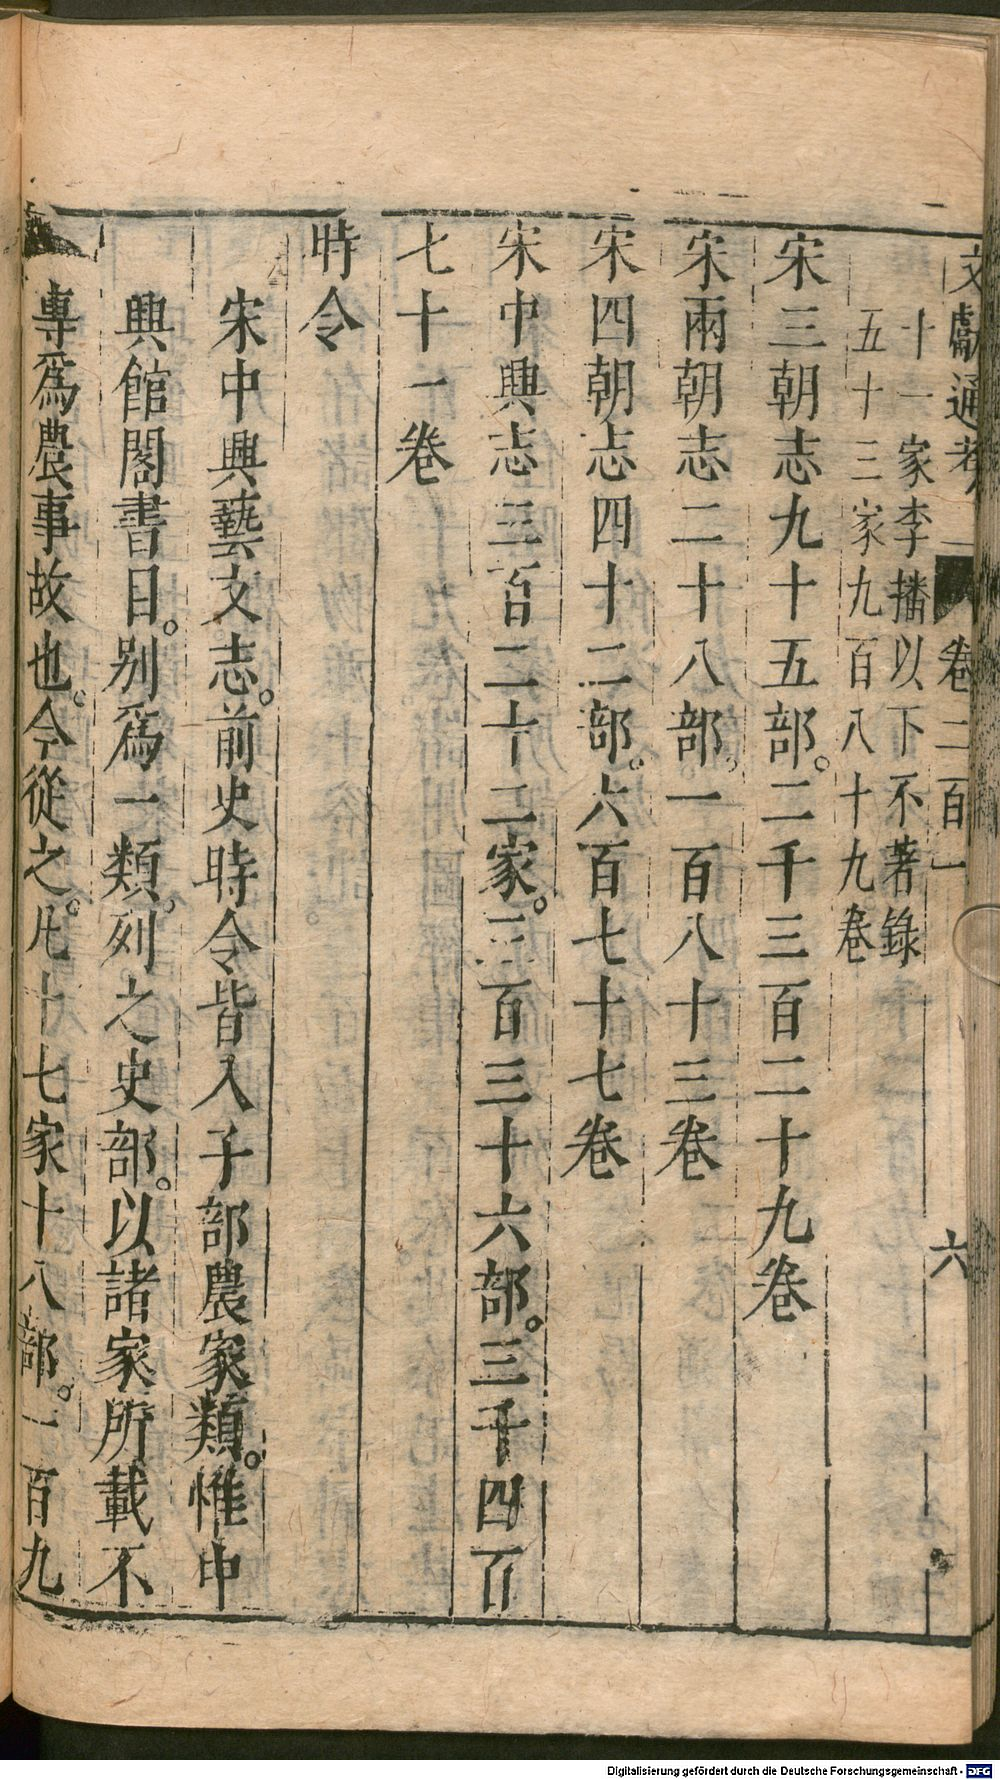 文獻通考 卷二百一 六
十一家李播以下不著錄
五十三家九百八十九卷
宋三朝志九十五部。二千三百二十九卷
宋兩朝志二十八部。一百八十三卷
宋四朝志四十二部。六百七十七卷
宋中興志三百二十二家。三百三十六部。三千四百
七十一卷
時令
宋中興藝文志。前史時令皆入子部農家類。惟中
興館閣書目。别爲一類。列之史部。以諸家所載不
專爲農事故也。今從之。凡十七家十八部。一百九
Digitalisierung gefördert durch die Deutsche Forschungsgemeinschaft - DFG